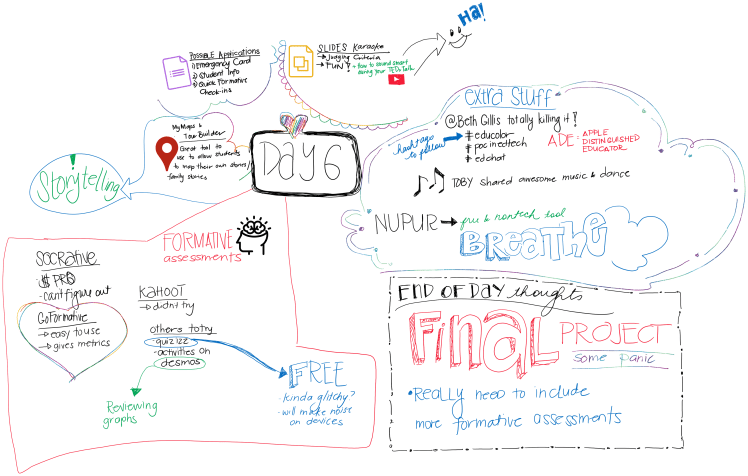 Day 6
Possible Applications
1) Emergency Card
2) Student Info
3) Quick Formative
Check-ins
SLIDES Karaoke
→ Judging Criteria
→ FUN! + how to sound smart
during your TEDx Talk
Ha!
My Maps &
Tour Builder
Great tool to
use to allow students
to map their own stories/
family stories
! Storytelling
extra stuff
@Beth Gillis totally killing it!
hashtags
to follow
# educolor
# pocinedtech
# edchat
ADE: APPLE
DISTINGUISHED
EDUCATOR
TOBY shared awesome music & dance
NUPUR → free & nontech tool
BREATHE
FORMATIVE
assessments
Socrative
$ PRO
- can't figure out
GoFormative
→ easy to use
→ gives metrics
KAHOOT
→ didn't try
others to try
- quizizz
- activities on
desmos
Reviewing
graphs
FREE
- kinda glitchy?
- will make noise
on devices
END OF DAY thoughts
Final PROJECT
some panic
• Really need to include
more formative assessments